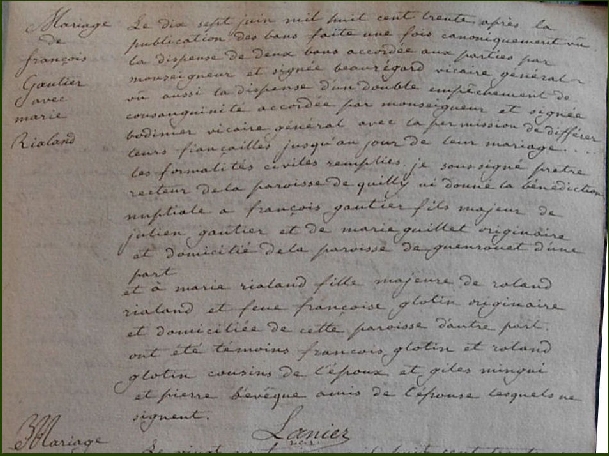 Mariage
de
françois
Gautier
avec
marie
Rialand
Le dix sept juin mil huit cent trente après la
publication des bans faite une fois canoniquement vû
la dispense de deux bans accordée aux parties par
monseigneur et signée beauregard vicaire général
vû aussi la dispense d'un double empêchement de
consanguinité accordée par monseigneur et signée
bodinier vicaire général avec la permission de différer
leurs fiançailles jusqu'au jour de leur mariage . .
les formalités civiles remplies, je soussigné prêtre
recteur de la paroisse de quilly ai donné la bénédiction
nuptiale a françois gautier fils majeur de
julien gautier et de marie guillet originaire
et domicilié de la paroisse de guenrouet d'une
part
et à marie rialand fille majeure de roland
rialand et feue françoise glotin originaire
et domiciliée de cette paroisse d'autre part.
ont été témoins françois glotin et roland
glotin cousins de l'époux et giles mingui
et pierre l'évêque amis de l'épouse lesquels ne
signent.
Lanier
Mariage